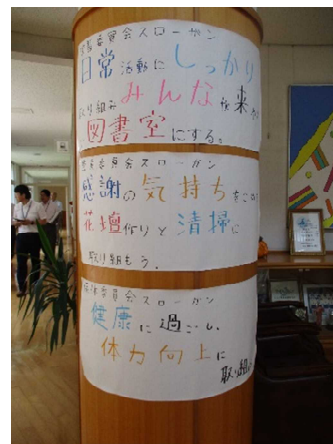 委員会スローガン
日常活動にしっかり
取り組みみんなが来
図書室にする。
委員会スローガン
感謝の気持ちをこめ
花壇作りと清掃に
取り組もう。
委員会スローガン
健康に過ごし
体力向上に
取り組